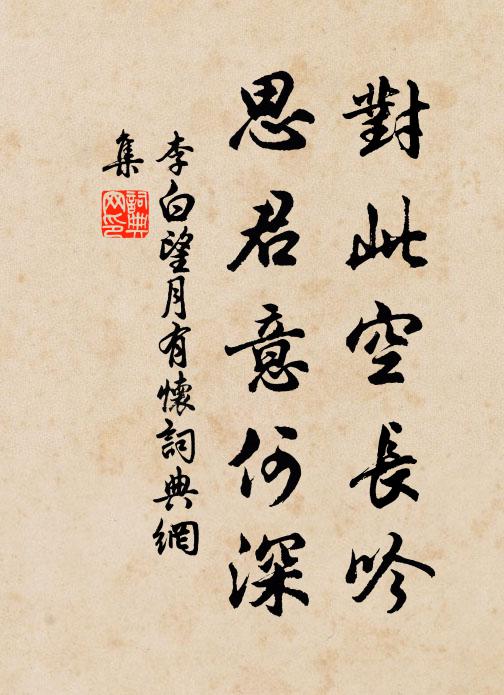 對此空長吟
思君意何深
李白望月有懷詞典網
集
詞典
网印